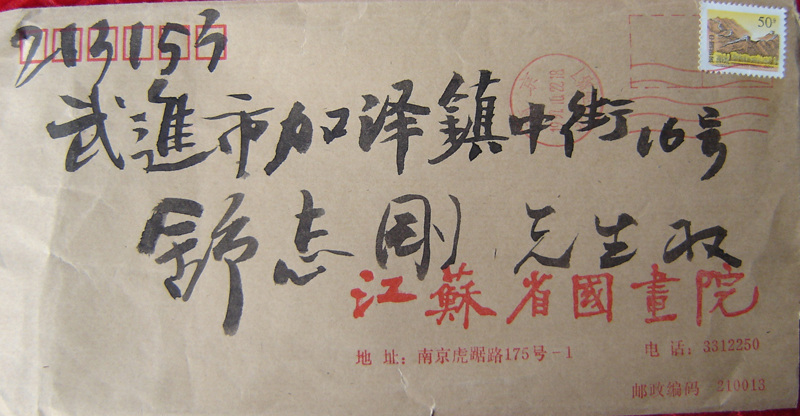 213153
50分
武進市加泽鎮中街16号
舒志刚 先生收
江蘇省國畫院
地 址：南京虎踞路175号-1
电 话：3312250
邮政编码 210013